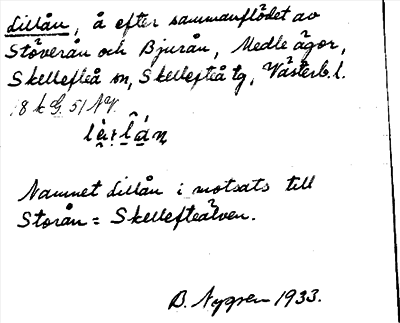 Lillån, å efter sammanflödet av
Stöverån och Bjurån, Medle ägor,
Skellefteå sn, Skellefteå tg, Västerb. l.
8 k G. 51 NV.
Namnet Lillån i motsats till
Storån = Skellefteälven.
B. Nygren 1933.